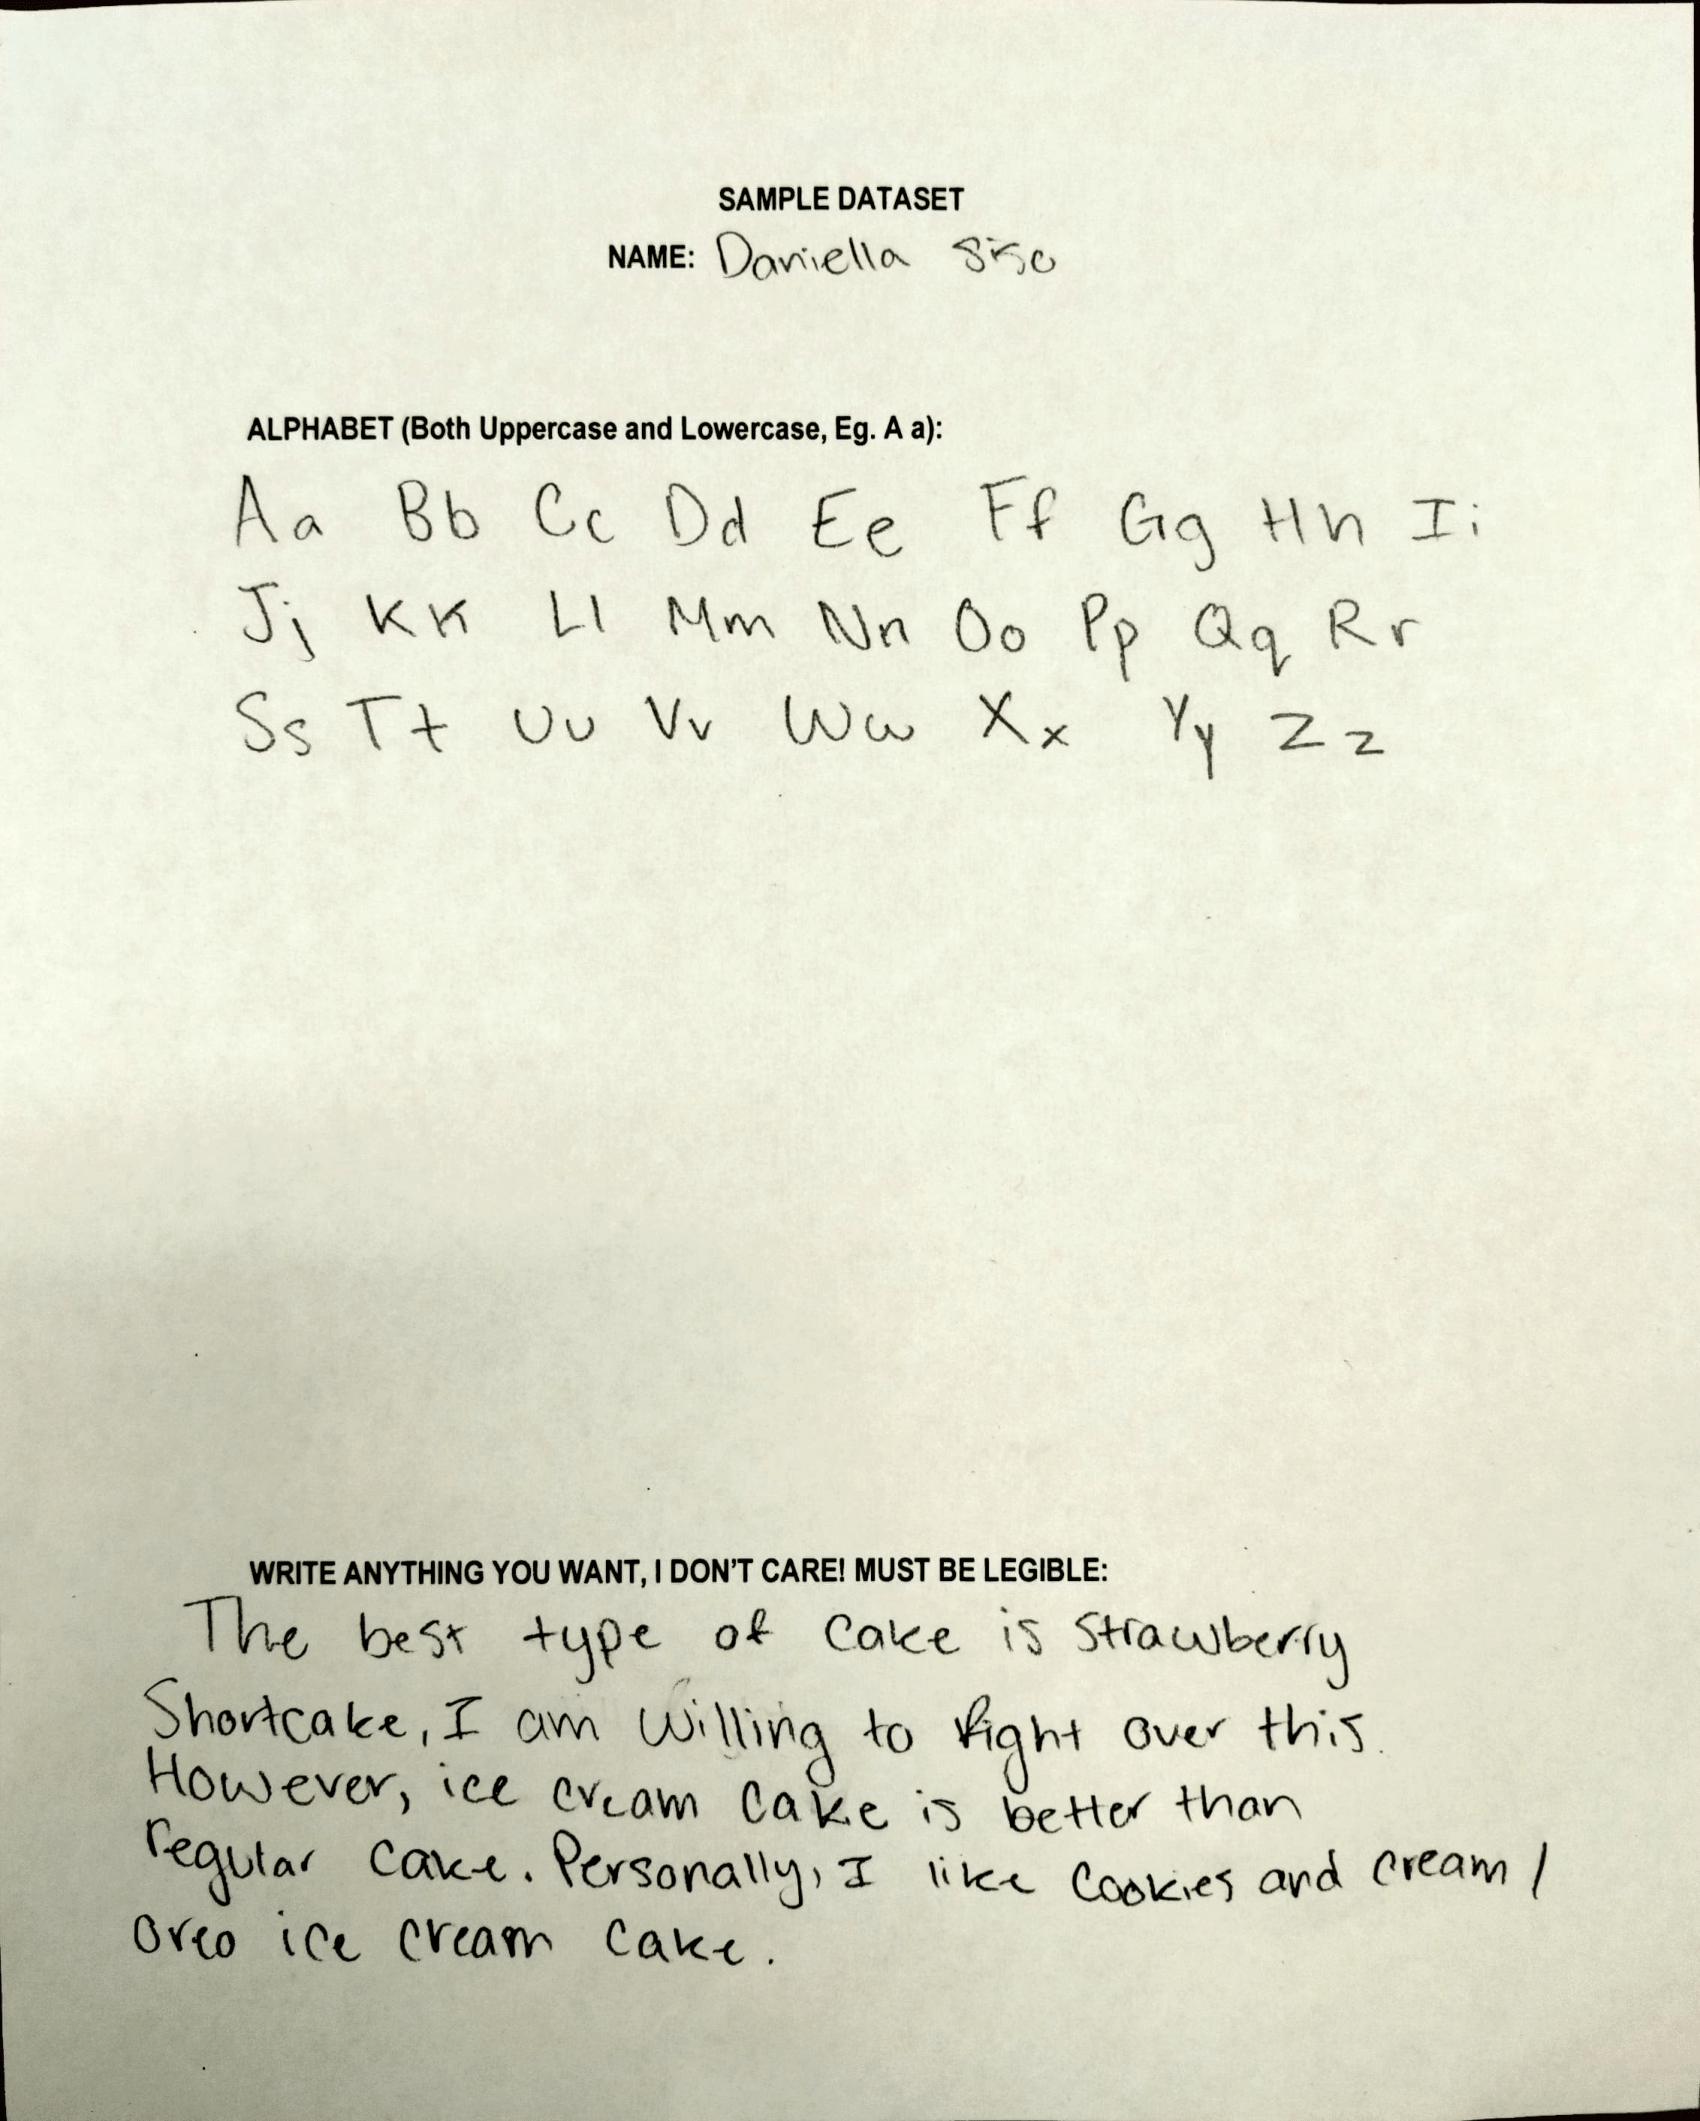 SAMPLE DATASET
NAME: Daniella
ALPHABET (Both Uppercase and Lowercase, Eg. A a):
Aa Bb Cc Dd Ee Ff Gg Hh Ii
Jj Kk Ll Mm Nn Oo Pp Qq Rr
Ss Tt Uu Vv Ww Xx Yy Zz
WRITE ANYTHING YOU WANT, I DON'T CARE! MUST BE LEGIBLE:
The best type of cake is strawberry
Shortcake, I am willing to fight over this.
However, ice cream cake is better than
regular cake. Personally, I like cookies and cream /
oreo ice cream cake.